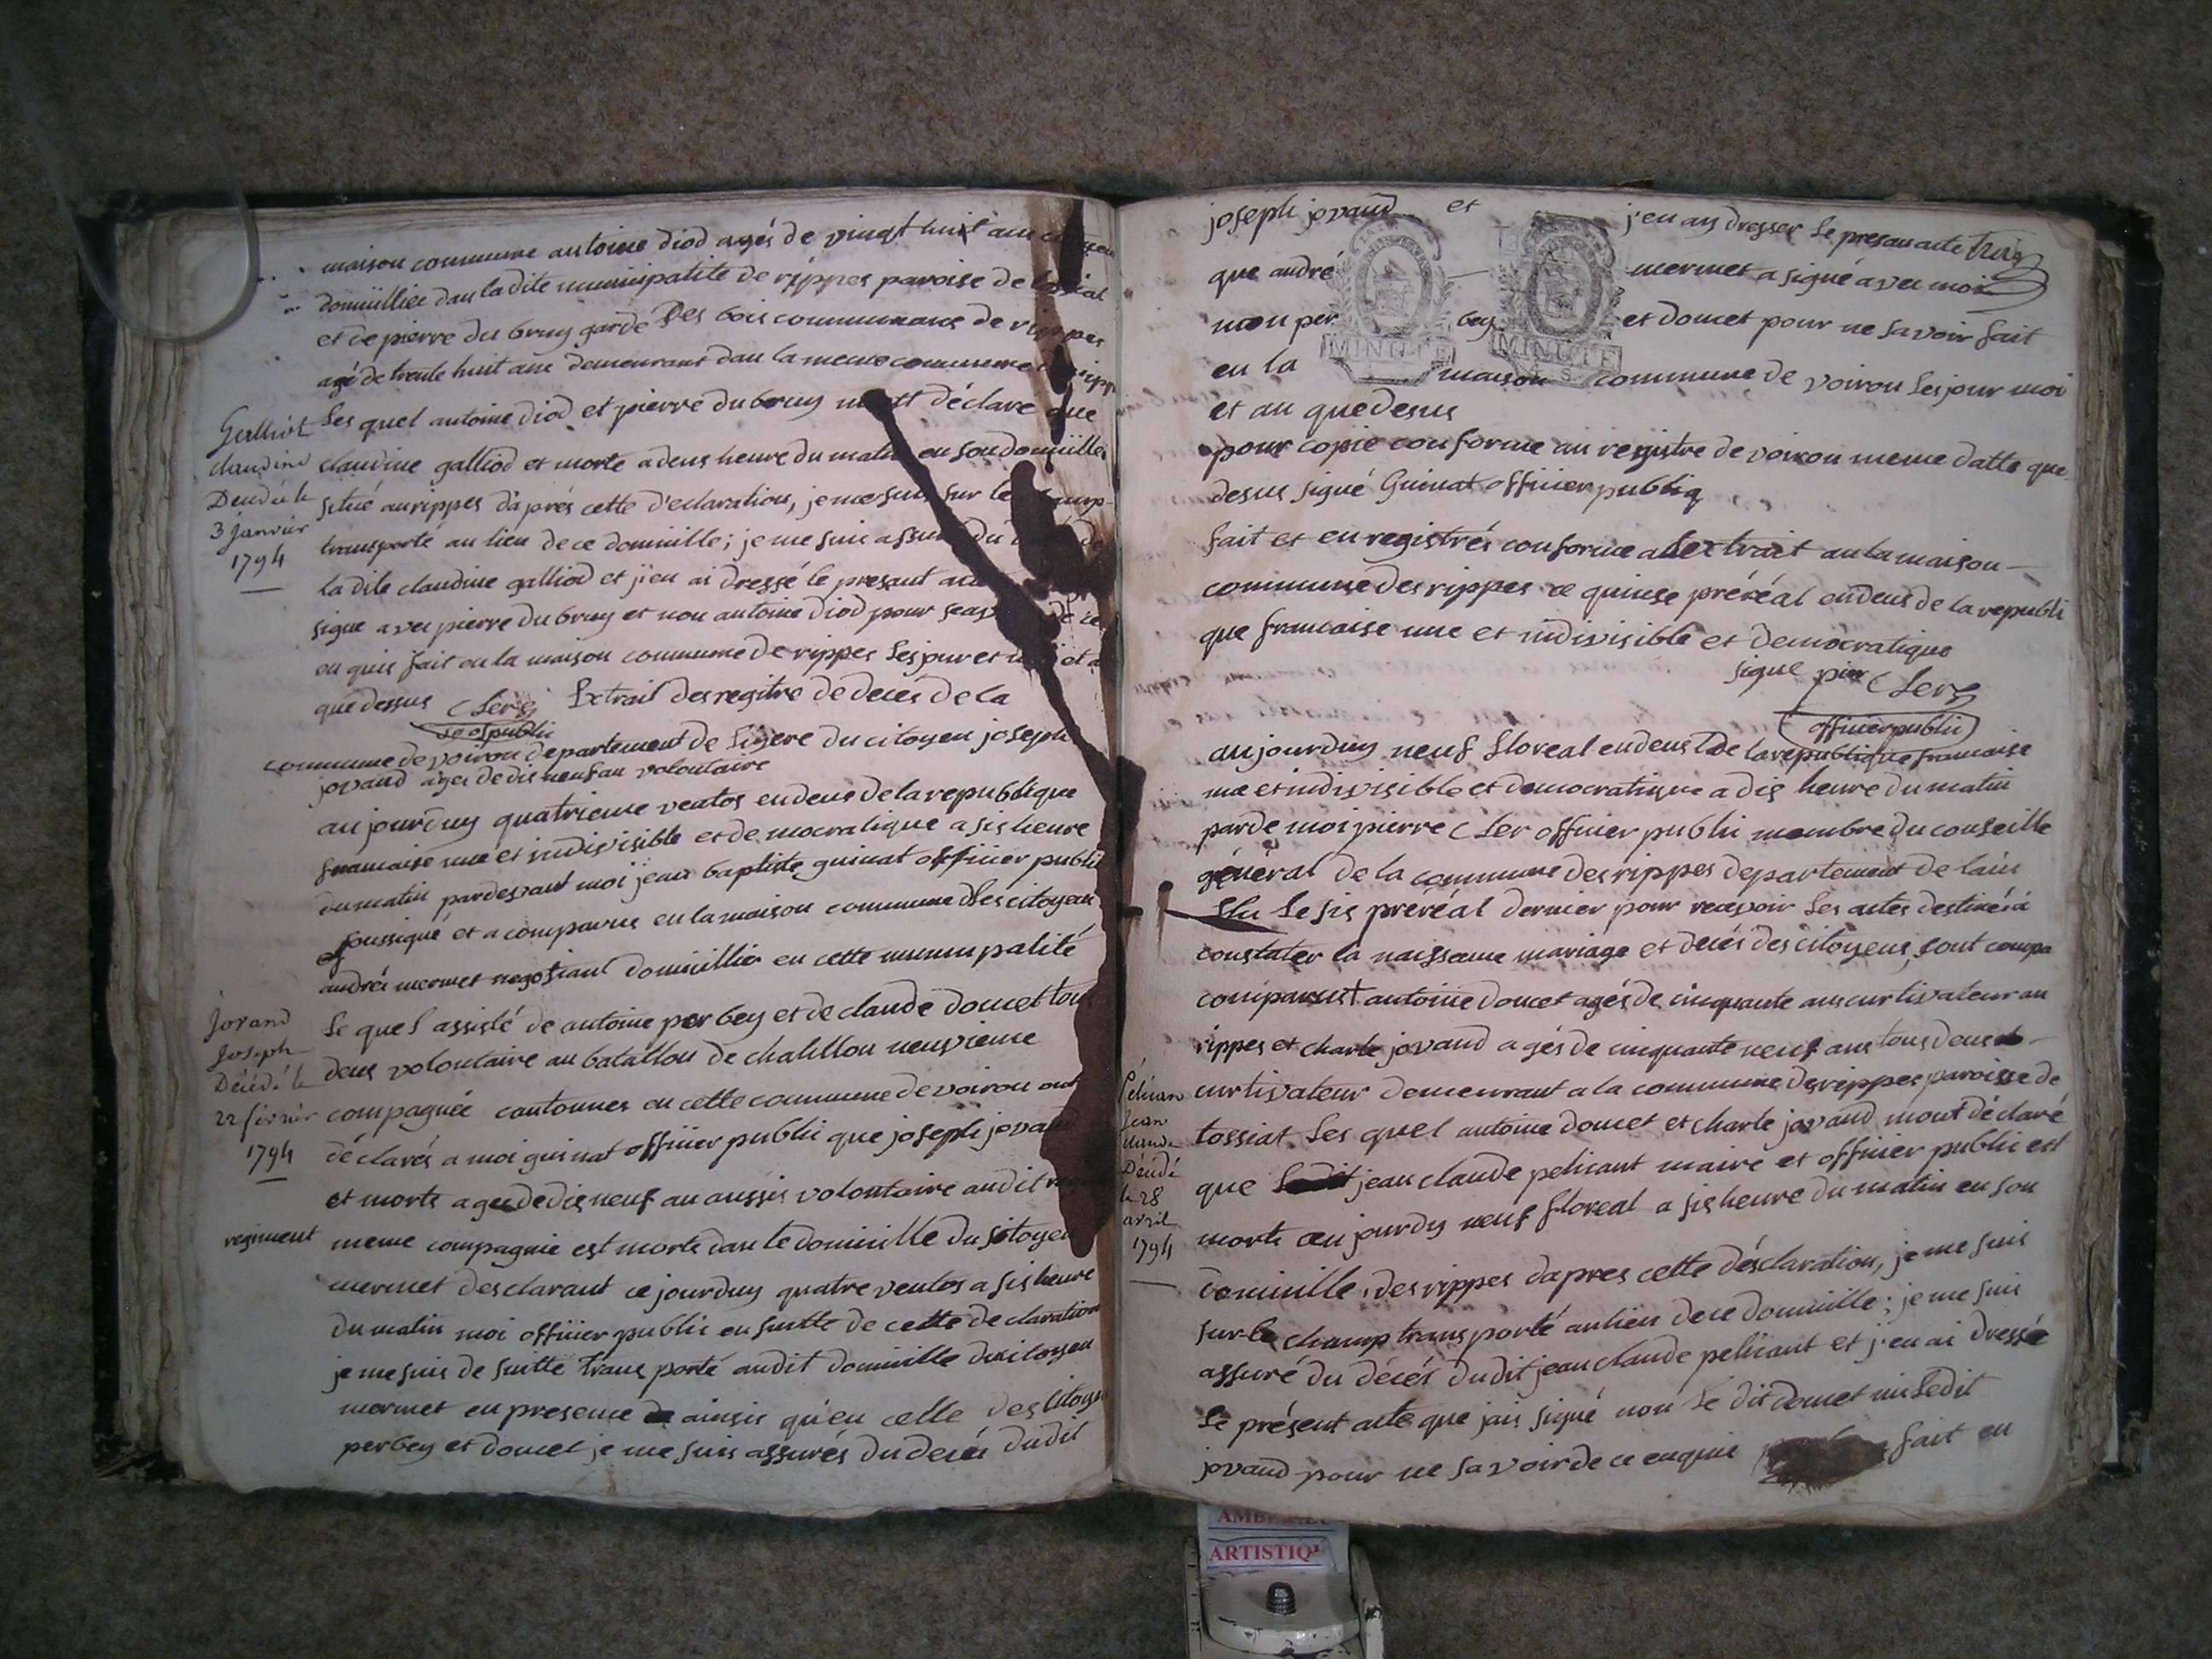 maison commune antoine diod agés de vingt huit ans
domiillier dan la dite municipalite de rippes paroise de
et de pierre du bruy garde des bois communaux de rippes
agé de trente huit ans demeurant dan la meme commune
Les quel antoine diod et pierre du bruy déclare que
Galliot
claudine
Décédé le
3 janvier
1794
claudine galliod et morte a deus heure du matin en son domiille
situé au rippes d'aprés cette d'eclaration, je me suis sur le champ
transporté au lieu de ce domiille; je me suis assuré du
la dite claudine galliod et j'en ai dressé le presant acte
signe avec pierre du bruy et non antoine diod pour
en quis fait en la maison commune de rippes Les jour et
que dessus Clerg Extrait des regitre de decés de la
commune de voirou departement de Ligere du citoyen joseph
jovand ages de dis neuf an volontaire
aujourduy quatrieme ventos en deus de la republique
francaise une et indivisible et democratique a sis heure
du matin pardevant moi jean baptiste guinat offiiier public
soussigué et a comparus en la maison commune des citoyen
andré mermet negosiant domicillier en cette municipalité
Jovand
Joseph
Décédé le
22 février
1794
Le quel assisté de antoine perbey et de claude doucet tou
deus volontaire au batallou de chatillou neuvieme
compagnée cantonner en cette commune de voirou ont
déclarés a moi guinat offiiier public que joseph jovand
et morte agee de dis neuf an aussis volontaire au dit
regiment
meme compagnie est morte dan le domiille du sitoyen
mermet desclarant ce jourduy quatre ventos a sis heure
du matin moi offiiier public en suitte de cette declaration
je me suis de suitte transporté audit domiille du citoyen
mermet en presence ainsis qu'en celle des citoyen
perbey et doucet je me suis assurés du decés dudit
joseph jovand et j'en ay dresser Le presan acte
que andré mermet a signé avec moi
non per bey et doucet pour ne savoir fait
MINUTE MINUTE
en la maison commune de voirou Les jour moi
et an que desus
pour copie conforme au regiistre de voirou meme datte que
desus signé Guinat offiiier publiq
fait et enregistrés conforme a Lextrait au la maison
commune des rippes ce quinse préréal en deus de la republi
que francaise une et indivisible et democratique
signé pier Clerg
offiiier public
aujourduy neuf floreal en deus de la republique francaise
une et indivisible et democratique a dis heure du matin
par de moi pierre Cler offiiier public membre du conseille
général de la commune des rippes departement de lain
Elu Le sis preréal dernier pour recevoir Les actes destinés à
constater la naissance mariage et decés des citoyens, sont compa
comparust antoine doucet agés de cinquante ans curtivateur au
rippes et charle jovand agés de cinquante neuf ans tous deus
curtivateur demeurant a la commune des rippes paroisse de
Pélican
Jean
claude
Décédé
le 28
avril
1794
tossiat Les quel antoine doucet et charle jovand mont déclaré
que jean claude pelicant maire et offiiier public est
morte au jourduy neuf floreal a sis heure du matin en son
domiille, des rippes dapres cette désclaration, je me suis
sur le champ transporté au lieu de ce domiille; je me suis
assuré du décés dudit jean claude pelicant et j'en ai dressé
Le présent acte que jais signé non Le dit doucet ni Ledit
jovand pour ne savoir de ce enquie fait en
ARTISTIQ